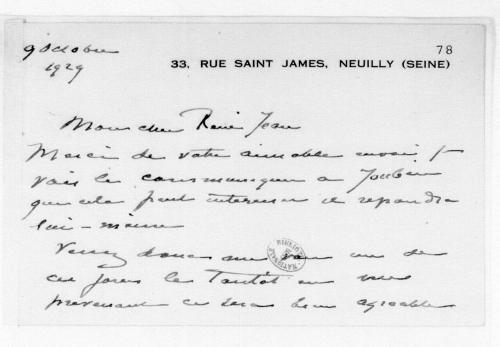 9 Octobre
1929
78
33, RUE SAINT JAMES, NEUILLY (SEINE)
Mon cher René Jean
Merci de votre aimable envoi je
vais le communiquer à Joubin
que cela peut intéresser il répondra
lui-même
Venez donc me voir un de
ces jours le tantôt en me
prévenant ce sera bien agréable
BIBLIOT
NATIONALE